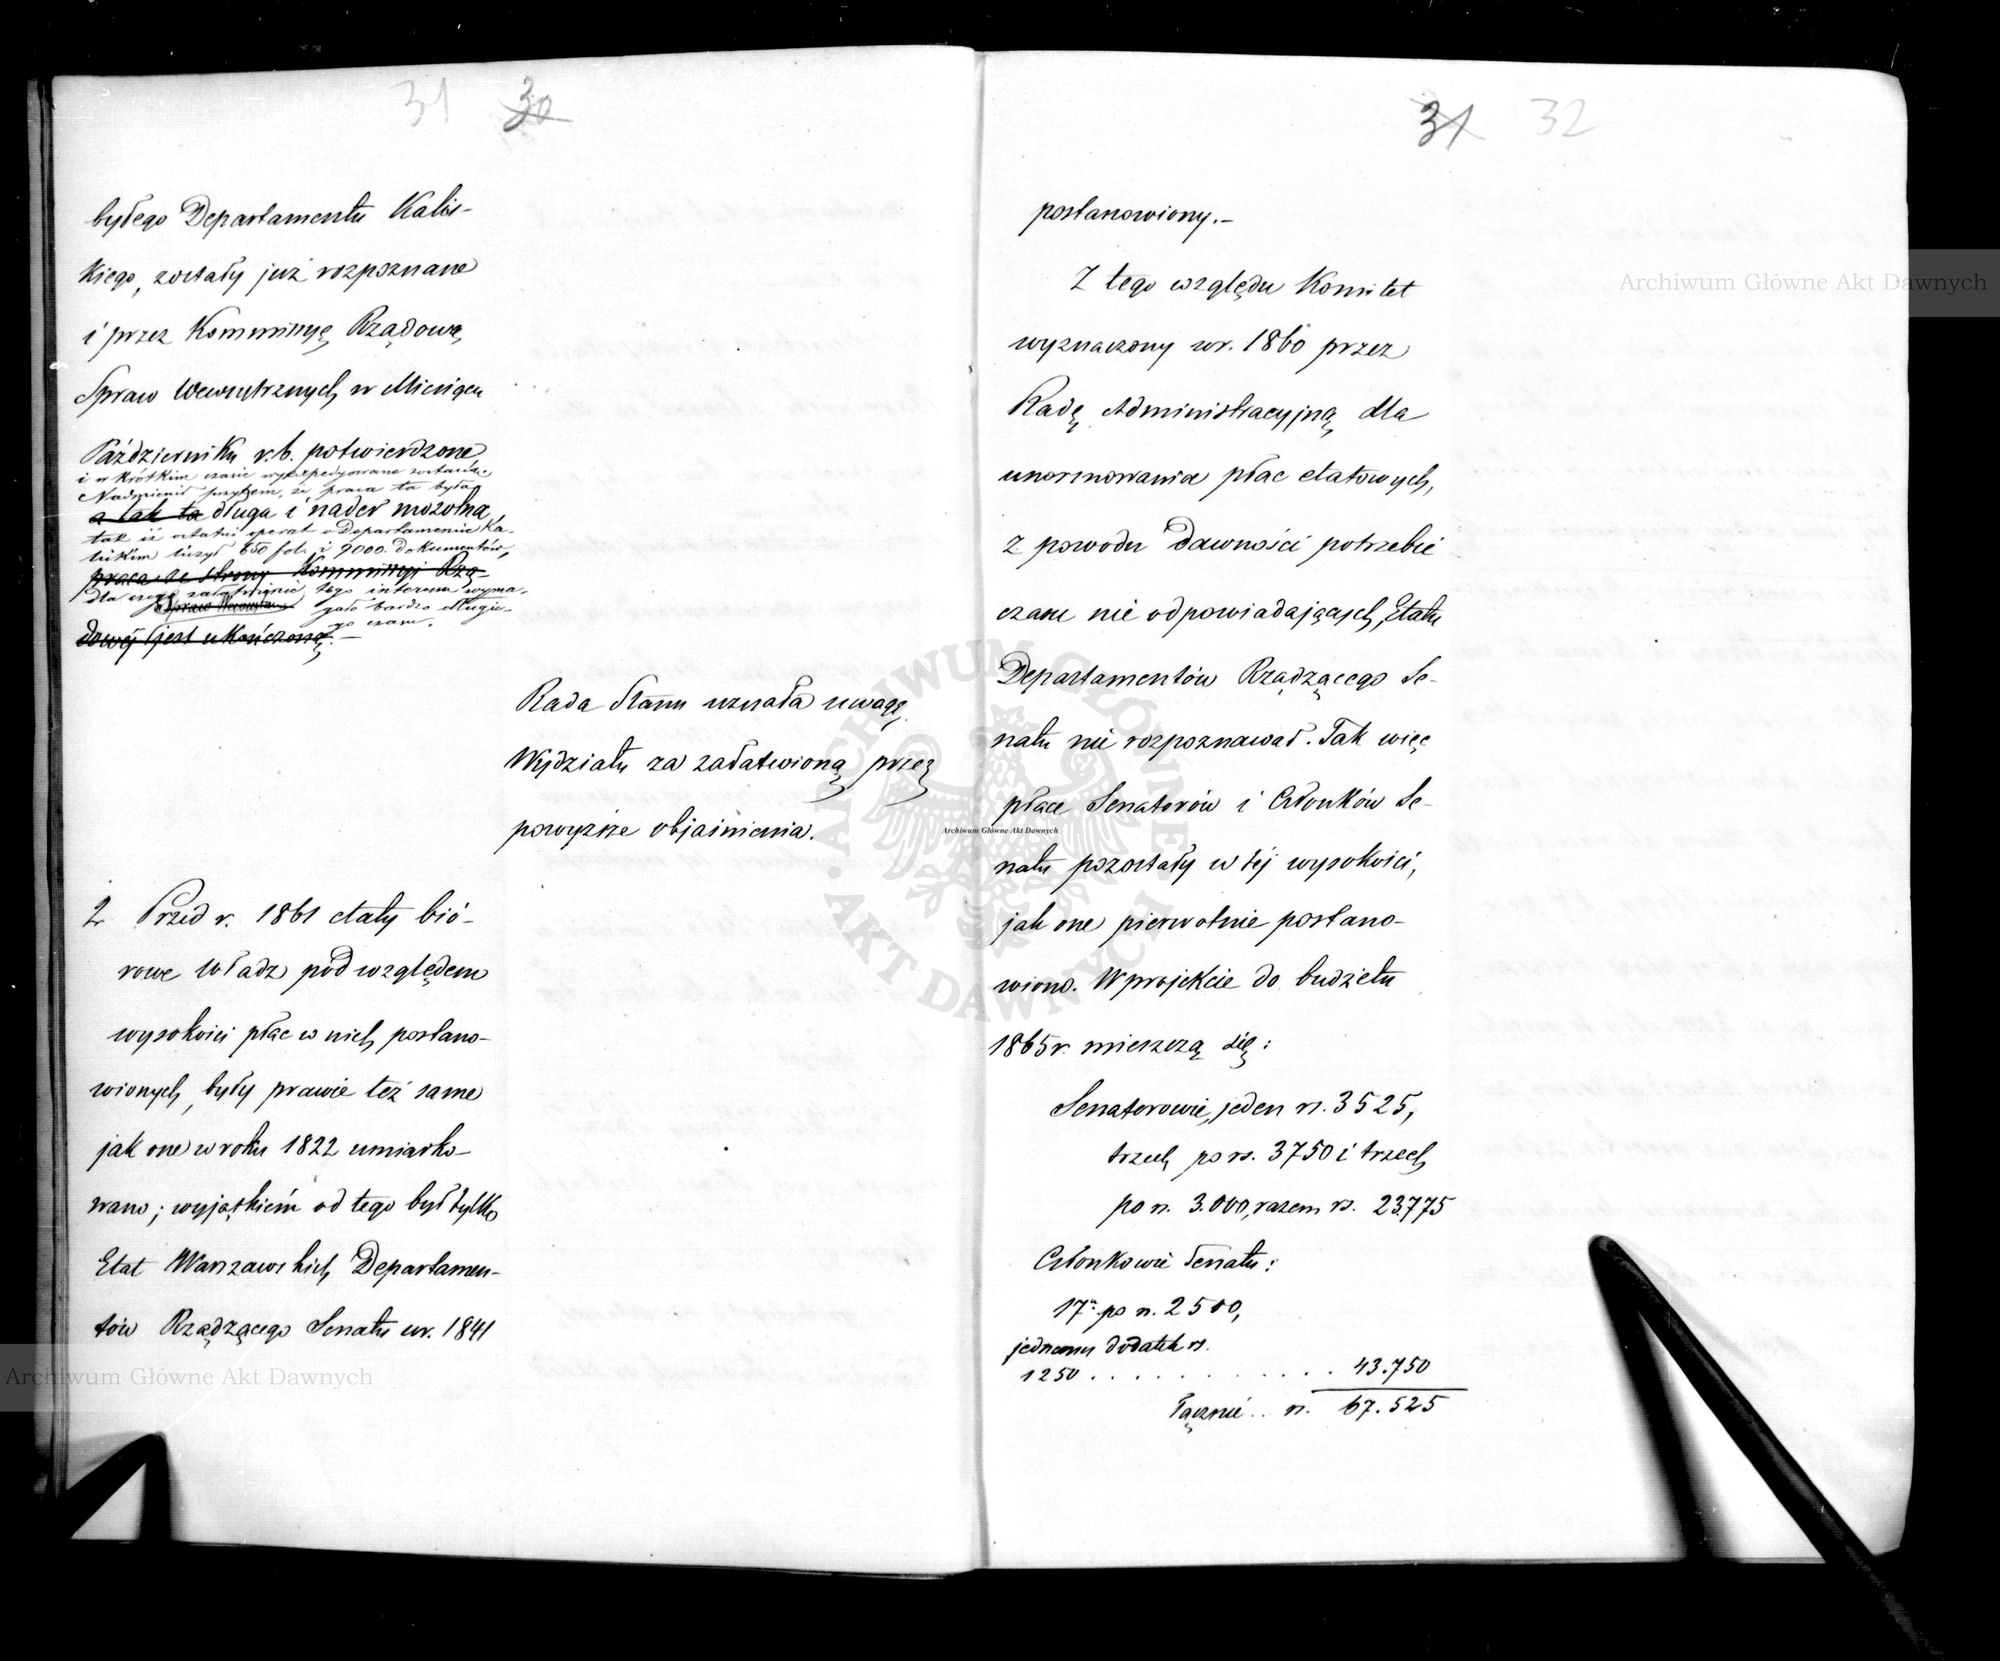 31 30
byłego Departamentu Kalis-
kiego, zostały już rozpoznane
i przez Kommissyę Rządową
Spraw Wewnętrznych w Miesiącu
Październiku r.b. potwierdzone
i w krótkim czasie wyexpedyowane zostaną.
Nadmienił przytem, że praca ta była
a tak ta długa i nader mozolna
tak iż ostatni operat o Departamencie Ka-
liskim liczył 650 fol. i 9000 dokumentów,
praca ze strony Kommissyi Rzą-
dla czego załatwienie tego interesu wyma-
Spraw Wewnętrz gało bardzo długie-
go czasu.
dowej jest ukończoną.—
Rada Stanu uznała uwagę
Wydziału za załatwioną przez
powyższe objaśnienia.
2 Przed r. 1861 etaty bió-
rowe Władz pod względem
wysokości płac w nich postano-
wionych, były prawie też same
jak one w roku 1822 umiarko-
wano; wyjątkiem od tego był tylko
Etat Warszawskich Departamen-
tów Rządzącego Senatu w r. 1841
31 32
postanowiony.—
Z tego względu Komitet
wyznaczony w r. 1860 przez
Radę Administracyjną dla
unormowania płac etatowych,
z powodu dawności potrzebie
czasu nie odpowiadających, Etatu
Departamentów Rządzącego Se-
natu nie rozpoznawał. Tak więc
płace Senatorów i Członków Se-
natu pozostały w tej wysokości,
jak one pierwotnie postano-
wiono. W projekcie do budżetu
1865 r. mieszczą się:
Senatorowie, jeden rs. 3525,
trzech po rs. 3750 i trzech
po rs. 3.000, razem rs. 23.775
Członkowie Senatu:
17n po rs. 2500,
jednemu dodatek rs.
1250 . . . . . . . . . . . 43.750
Łącznie .. rs. 67.525
Archiwum Główne Akt Dawnych
Archiwum Główne Akt Dawnych
Archiwum Główne Akt Dawnych
ARCHIWUM GŁÓWNE AKT DAWNYCH